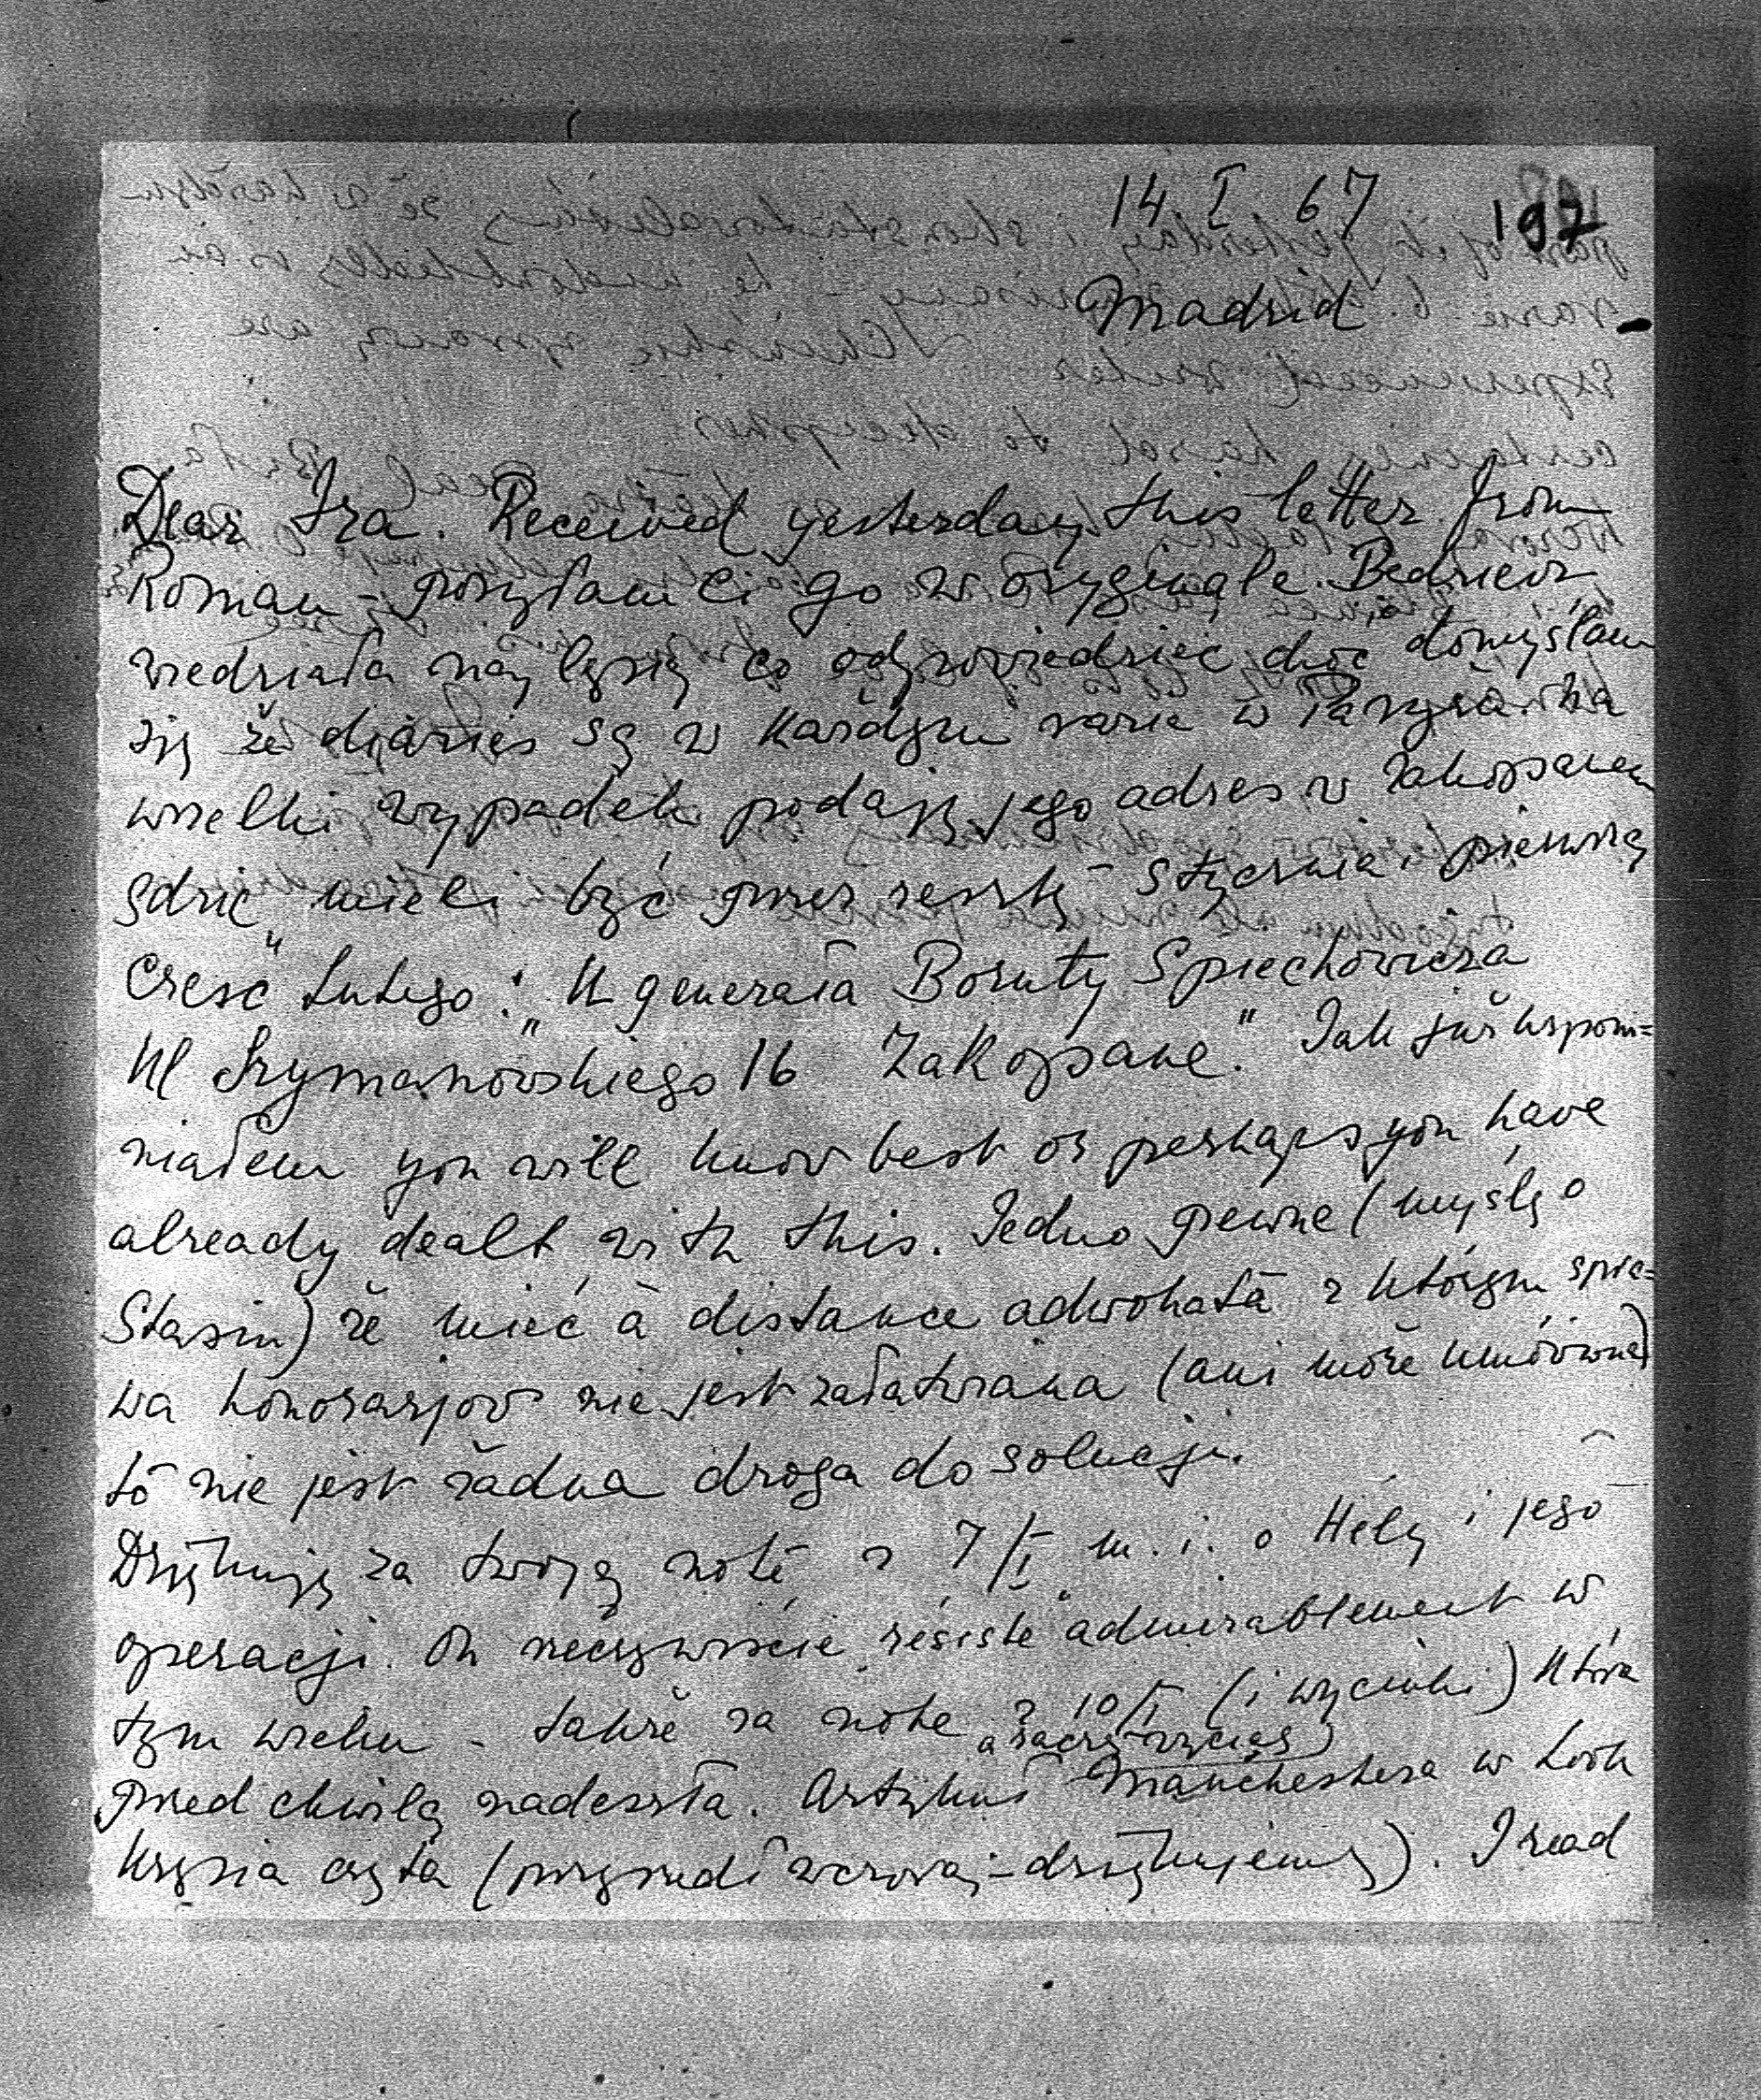 14. I. 67
197
Madrid
Dear Ira. Received yesterday this letter from
Roman - posyłam Ci go w oryginale. Będziesz
wiedziała najlepiej co odpowiedzieć choć domyślam
się że diaries są w każdym razie w Paryżu. Na
wszelki wypadek podaję jego adres w Zakopanem
gdzie mieli być przez resztę stycznia i pierwszą
cześć Lutego: "U generała Boruty Spiechowicza
Ul Szymanowskiego 16 Zakopane." Jak już wspom=
niałem you will know best or perhaps you have
already dealt with this. Jedno pewne (myślę o
Stasiu) że mieć à distance adwokata z którym spra=
wa honorarjów nie jest załatwiana (ani może umówiona)
to nie jest żadna droga do solucji.
Dziękuję za twoją notę z 7/I m. i. o Hélą i jego
operacji. On rzeczywiście "résiste admirablement" w
tym wieku - także za notę z 10/I (i wycinki) która
przed chwilą nadeszła. Artykuł Manchestera w Look
Krysia czyta (przyszedł wczoraj - dziękujemy). I read